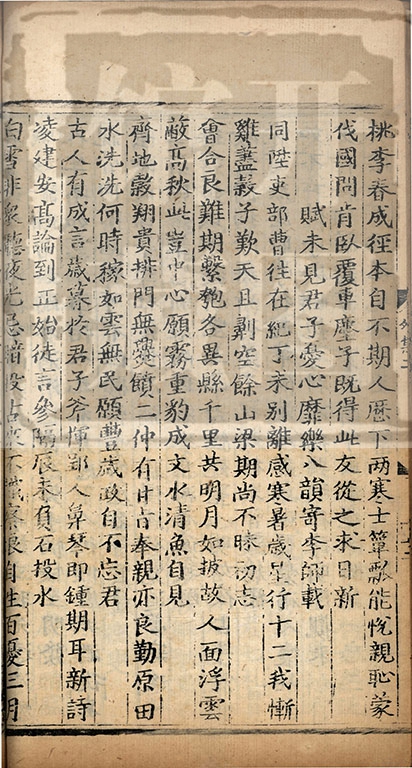 桃李春成徑本自不期人歷下兩寒士簞瓢能悅親恥蒙
伐國問肯臥覆車塵子既得此友從之求日新
賦未見君子憂心靡樂八韻寄李師載
同陞吏部曹往在紀丁未別離感寒暑歲星行十二我慚
雞盎鷇子歎天且劓空餘山梁期尚不昧初志
會合良難期繫匏各異縣千里共明月如披故人面浮雲
蔽高秋此豈中心願霧重豹成文水清魚自見
齊地穀翔貴排門無爨饙二仲有甘旨奉親亦良勤原田
水洗洗何時稼如雲無民願豐歲政自不忘君
古人有成言歲暮於君子斧揮郢人鼻琴即鍾期耳新詩
凌建安高論到正始徒言參隔辰未負石投水
白雪非衆聽夜光忌暗投古來不識察浪自生百憂三月